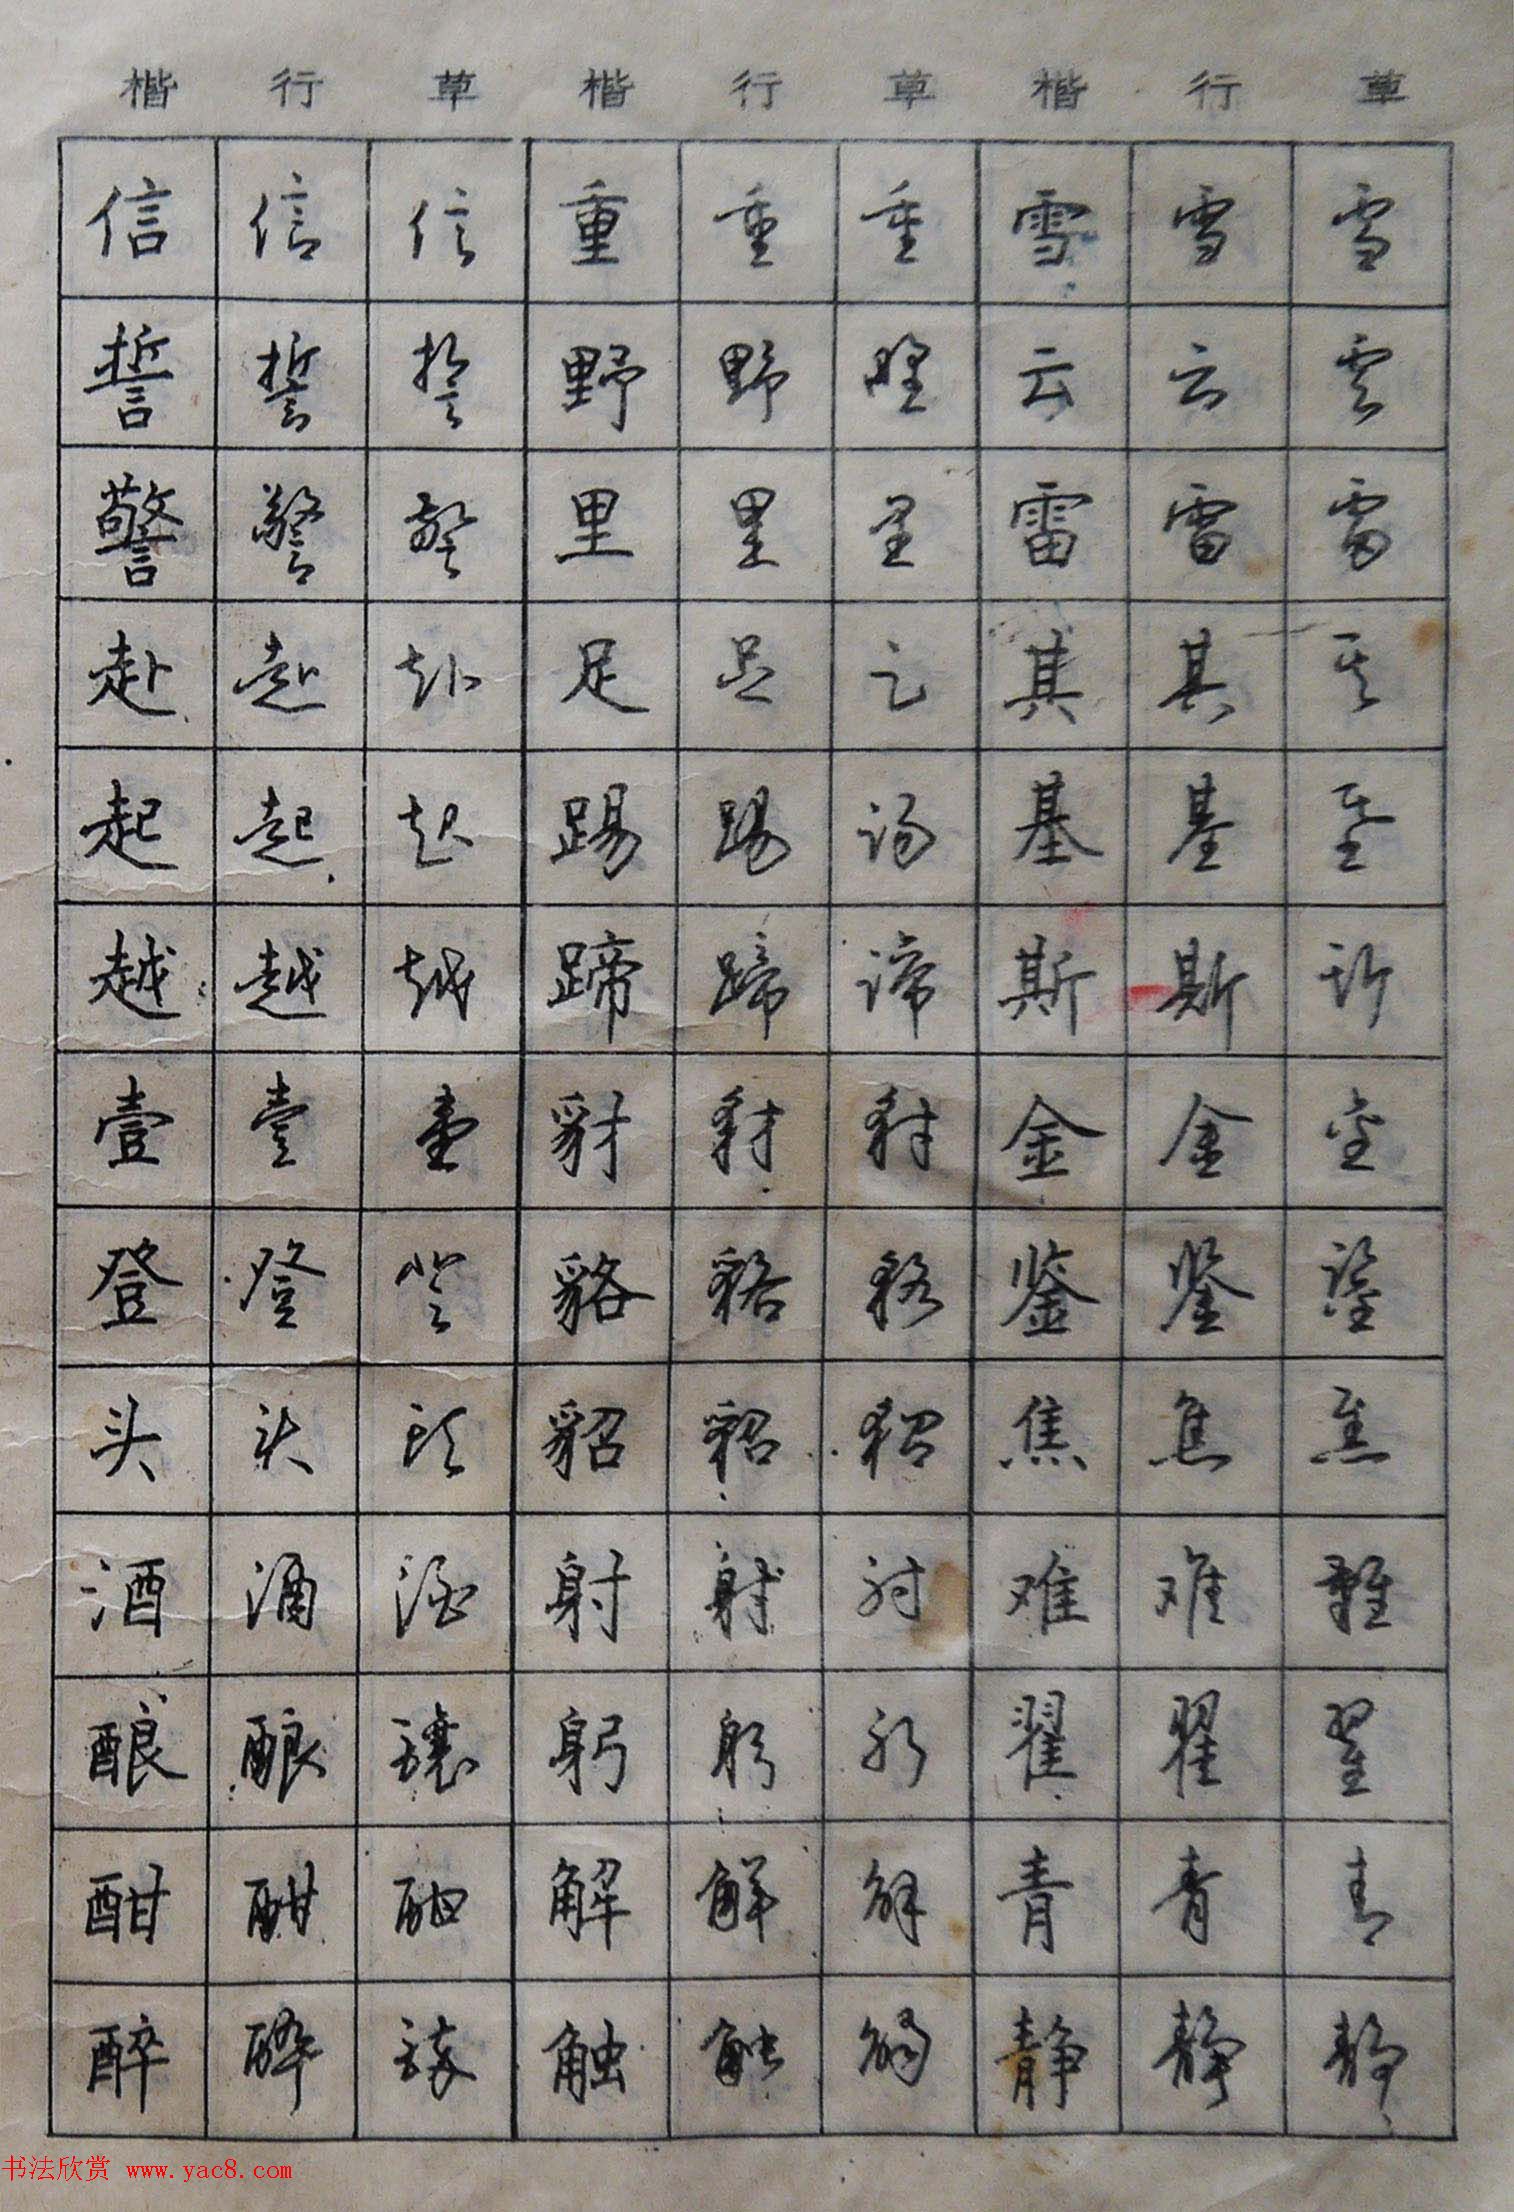 楷 行 草 楷 行 草 楷 行 草
信 信 信 重 重 重 雪 雪 雪
誓 誓 誓 野 野 野 云 云 雲
警 警 警 里 里 里 雷 雷 雷
赴 赴 赴 足 足 足 其 其 其
起 起 起 踢 踢 踢 基 基 基
越 越 越 蹄 蹄 蹄 斯 斯 斯
壹 壹 壹 豺 豺 豺 金 金 金
登 登 登 貉 貉 貉 鉴 鉴 鉴
头 头 頭 貂 貂 貂 焦 焦 焦
酒 酒 酒 射 射 射 难 难 難
酿 酿 釀 躬 躬 躬 翟 翟 翟
酣 酣 酣 解 解 解 青 青 青
醉 醉 醉 触 触 觸 静 静 静
书法欣赏 www.yac8.com